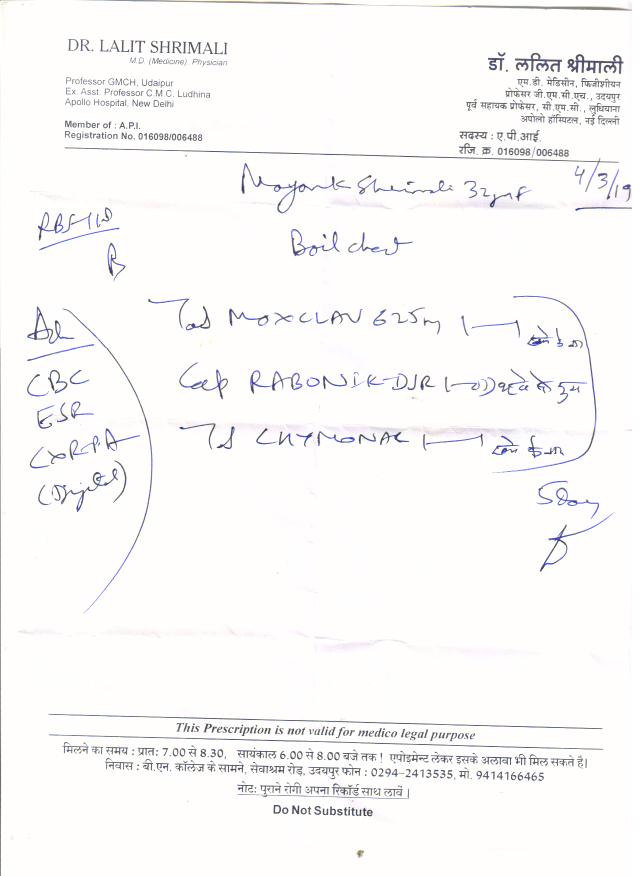 DR. LALIT SHRIMALI
M.D. (Medicine) Physician
Professor GMCH, Udaipur
Ex. Asst. Professor C.M.C. Ludhina
Apollo Hospital, New Delhi
Member of : A.P.I.
Registration No. 016098/006488
डॉ. ललित श्रीमाली
एम.डी. मेडिसीन, फिजीशीयन
प्रोफेसर जी.एम.सी.एच., उदयपुर
पूर्व सहायक प्रोफेसर, सी.एम.सी., लुधियाना
अपोलो हॉस्पिटल, नई दिल्ली
सदस्य : ए.पी.आई.
रजि. क्र. 016098/006488
4/3/19
Mayank Shrimali 32
Boil chest
Tab MOXCLAV 625m
Cap RABONIK-DSR
CBC
ESR
Tab CHYMONAC
CXR-PA
(Digital)
5 Day
This Prescription is not valid for medico legal purpose
मिलने का समय : प्रातः 7.00 से 8.30, सायंकाल 6.00 से 8.00 बजे तक ! एपोइमेन्ट लेकर इसके अलावा भी मिल सकते है।
निवास : बी.एन. कॉलेज के सामने, सेवाश्रम रोड़, उदयपुर फोन : 0294-2413535, मो. 9414166465
नोटः पुराने रोगी अपना रिकॉर्ड साथ लावें।
Do Not Substitute